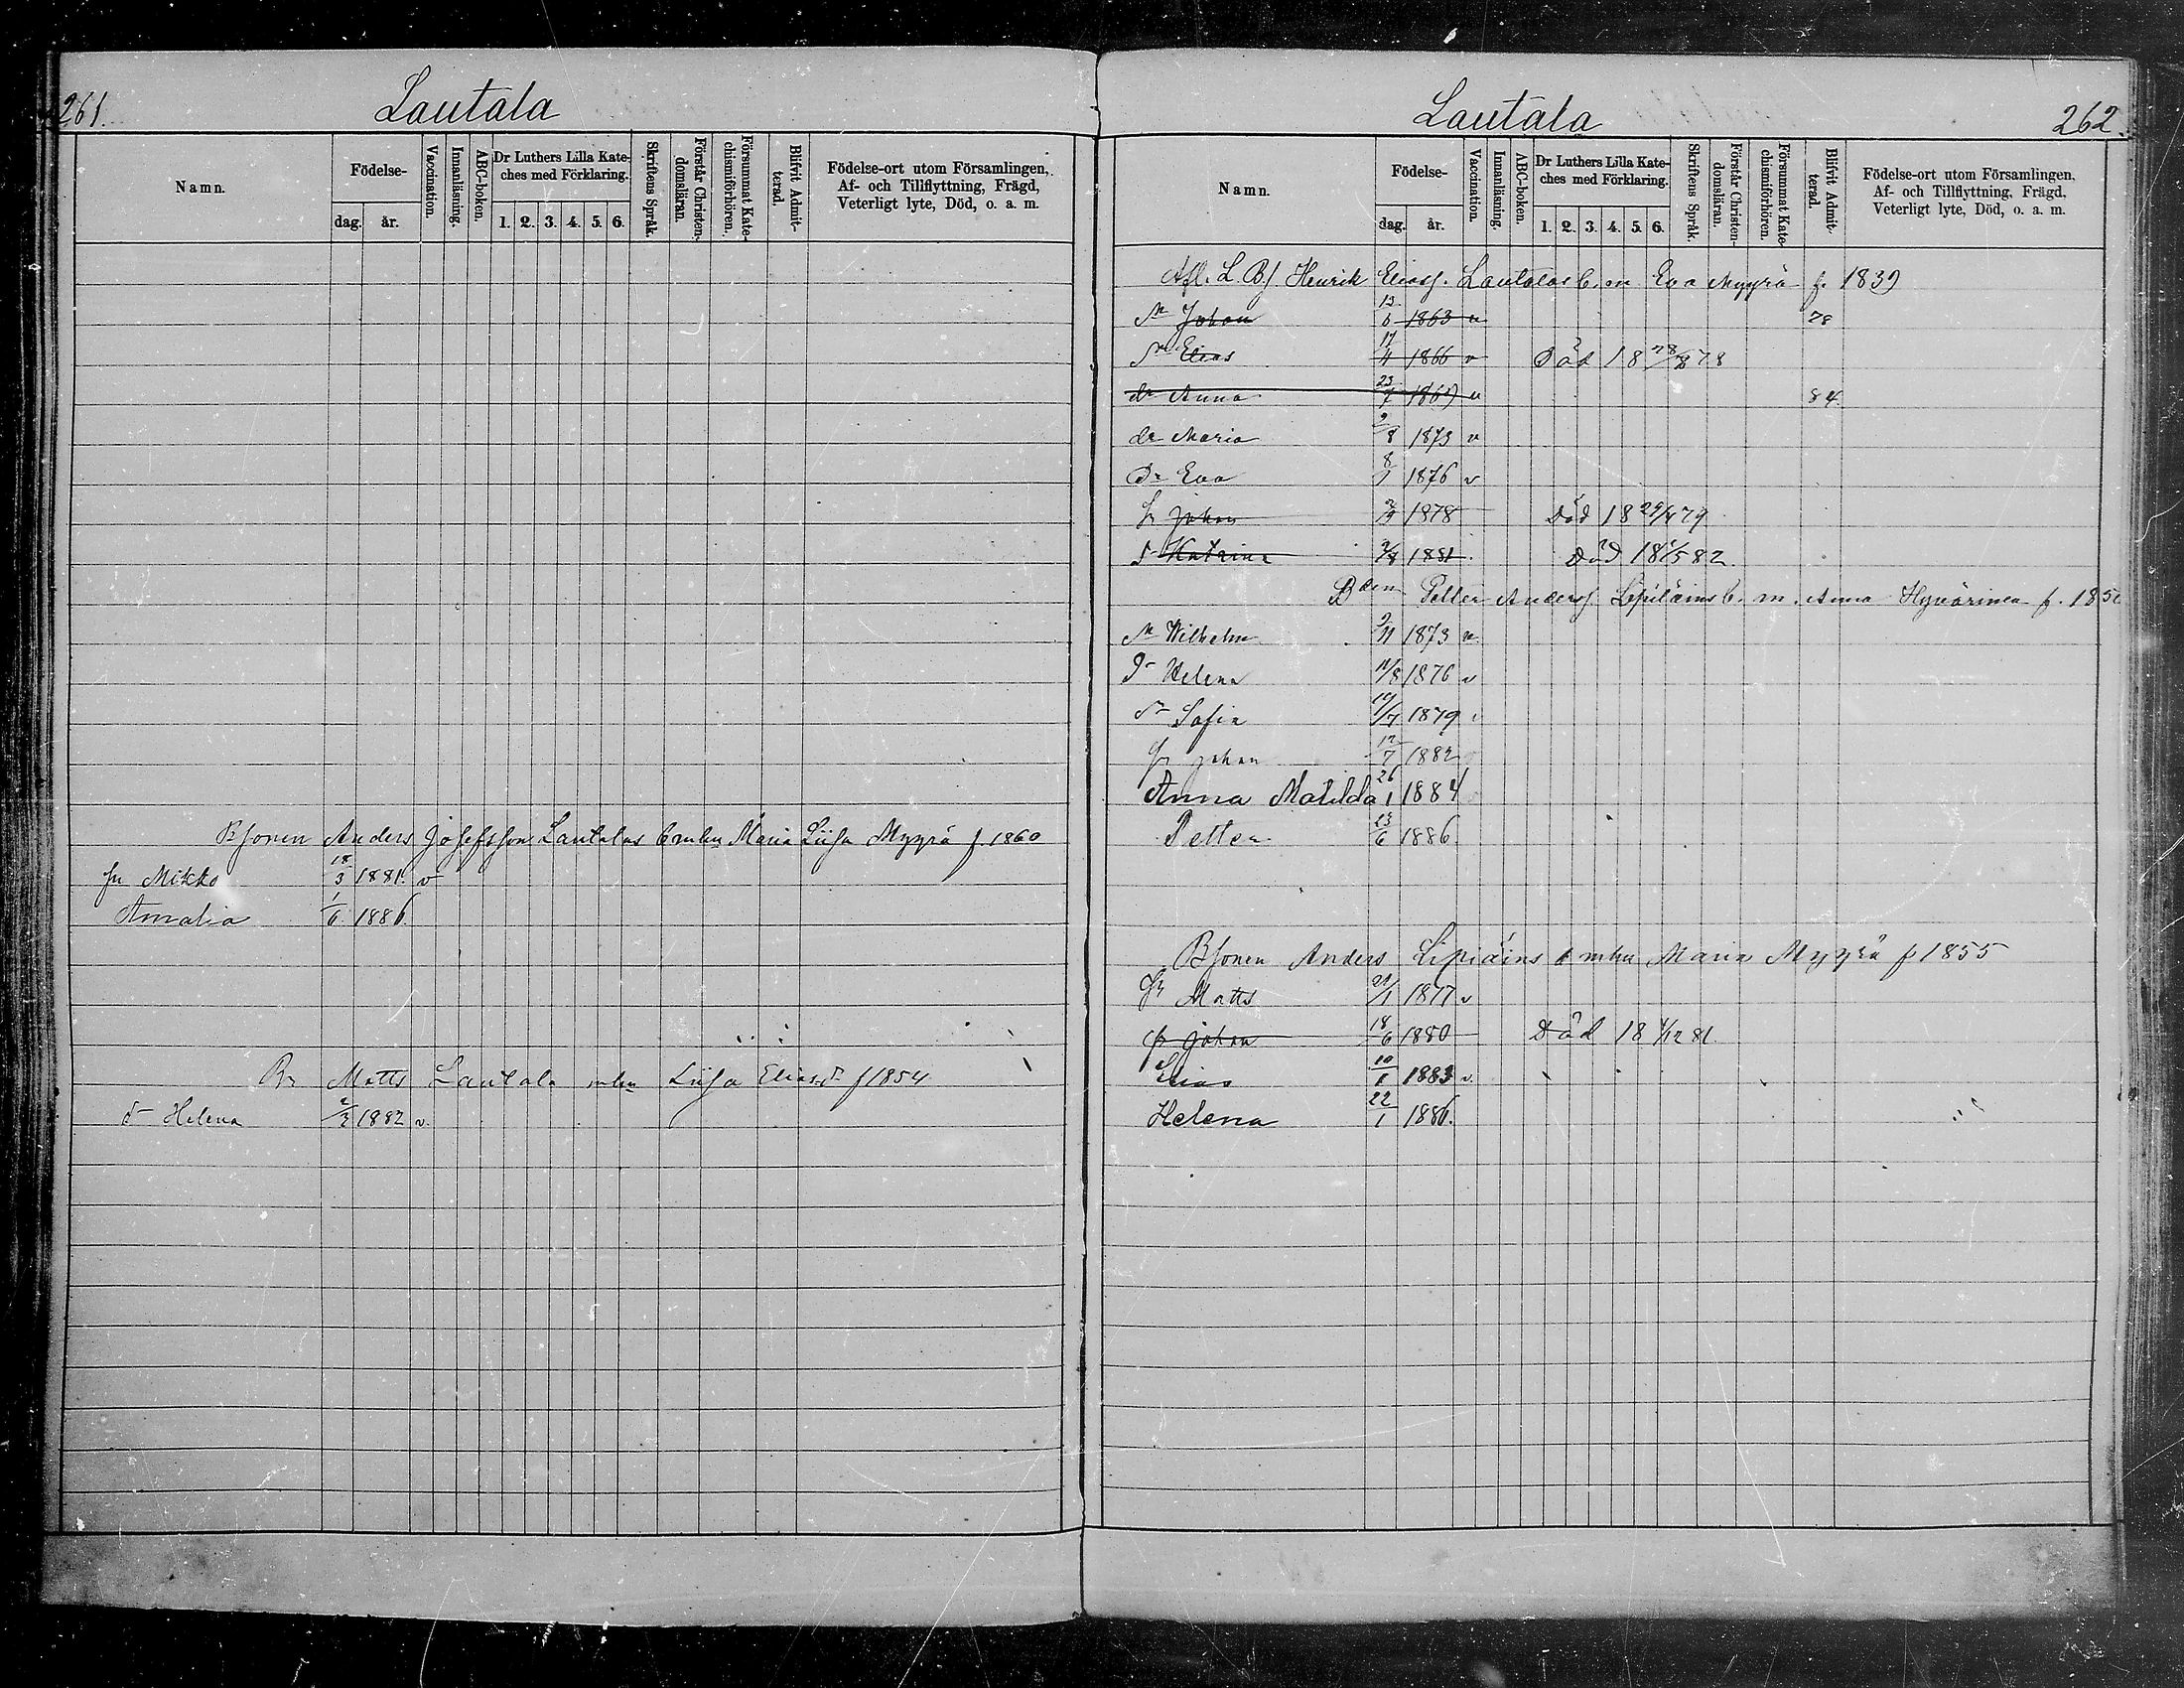 261.
Lautala
Namn.
Födelse-
dag. år.
Vaccination.
Innanläsning.
ABC-boken.
Dr Luthers Lilla Kate-
ches med Förklaring.
1. 2. 3. 4. 5. 6.
Skriftens Språk.
Förstår Christen-
domsläran.
Försummat Kate-
chismiförhören.
Blifvit Admit-
terad.
Födelse-ort utom Församlingen,
Af- och Tillflyttning, Frägd,
Veterligt lyte, Död, o. a. m.
Bsonen Anders Josefsson Lautalas b mhu Maria Liisa Myyrä f. 1860
sn Mikko 18/3 1881. v
Amalia 1/6 1886.
Br Matts Lautala mhu Liisa Eliasdr f 1854
dr Helena 2/3 1882 v.
Lautala
262.
Namn.
Födelse-
dag. år.
Vaccination.
Innanläsning.
ABC-boken.
Dr Luthers Lilla Kate-
ches med Förklaring.
1. 2. 3. 4. 5. 6.
Skriftens Språk.
Förstår Christen-
domsläran.
Försummat Kate-
chismiförhören.
Blifvit Admit-
terad.
Födelse-ort utom Församlingen,
Af- och Tillflyttning, Frägd,
Veterligt lyte, Död, o. a. m.
Afl. L. B.s Henrik Eliass. Lautalas b. m. Eva Myyrä f. 1839
sn Johan 13/6 1863 v 78
sn Elias 17/4 1866 v Död 18 78
dr Anna 23/7 1869 v 84.
dr Maria 9/8 1873 v
dr Eva 8/1 1876 v
sn Johan 1878 Död 18 29/4 79
dr Katrina 1881. Död 18 82.
Bden Petter Anderss. Lipiäins b. m. Anna Hyvärinen f. 185
sn Wilhelm 9/11 1873 v.
dr Helena 11/8 1876 v
dr Sofia 19/7 1879 v
sn Johan 12/7 1882
Anna Matilda 26/1 1884
Petter 23/6 1886.
Bsonen Anders Lipiäins b mhu Maria Myyrä f 1855
sn Matts 21/1 1877 v
sn Johan 18/6 1880 Död 18 1/12 81.
Elias 10/1 1883 v.
Helena 22/1 1886.